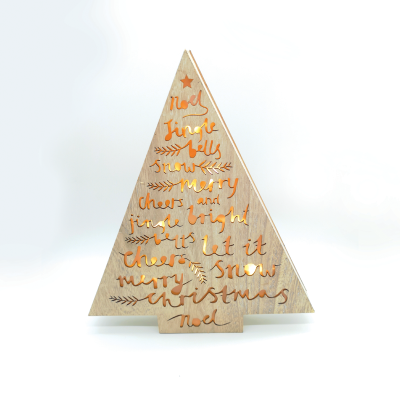 noel
Jingle
bells
Snow
merry
Cheers and
jingle bright
bells let it
Cheers
Snow
merry
christmas
noel